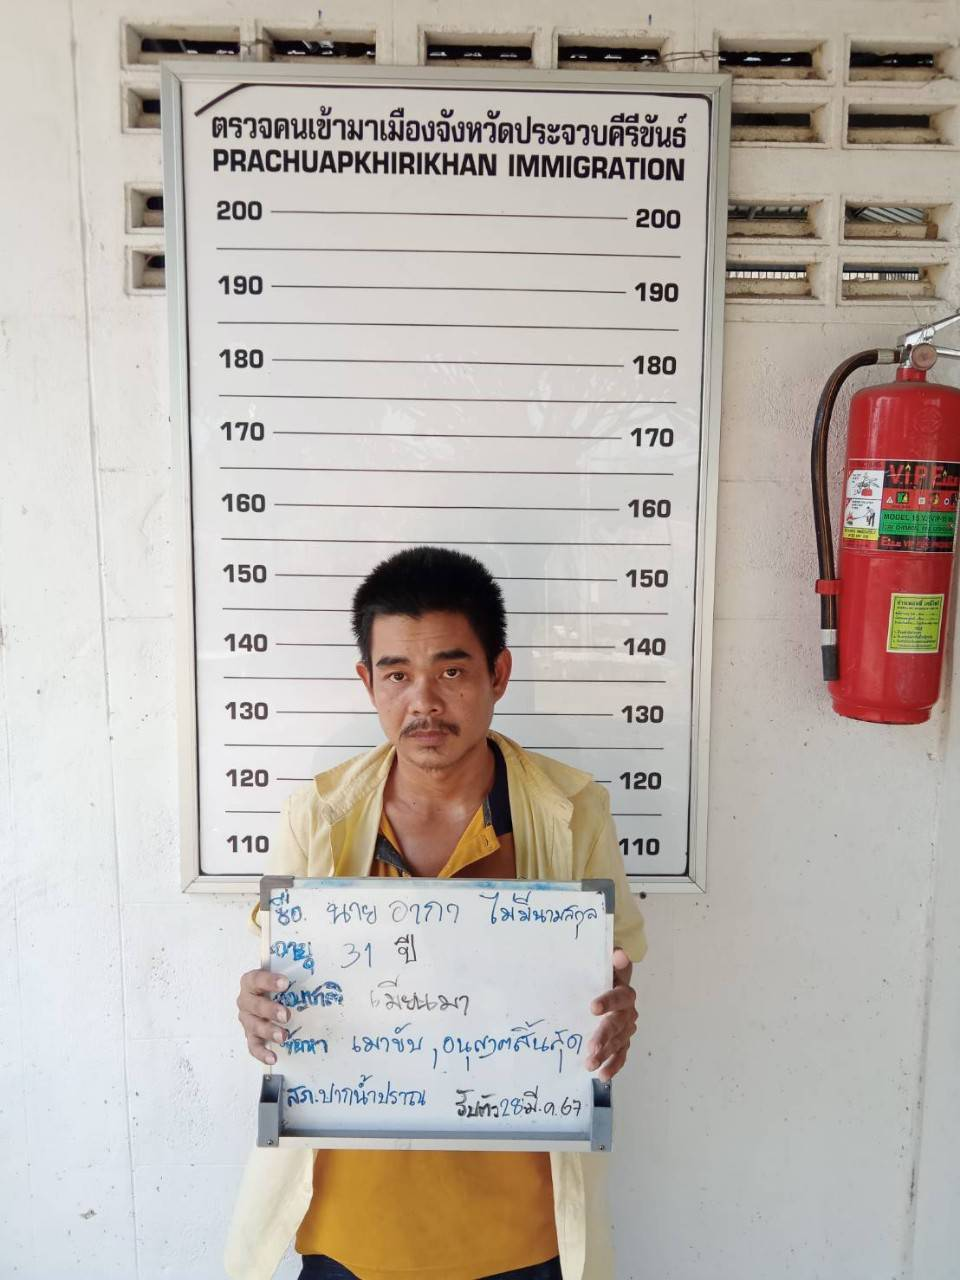 ตรวจคนเข้าเมืองจังหวัดประจวบคีรีขันธ์
PRACHUAPKHIRIKHAN IMMIGRATION
200 200
190 190
180 180
170 170
160 160
150 150
140 140
130 130
120 120
110 110
ชื่อ. นาย อากา ไม่มีนามสกุล
อายุ 31 ปี
สัญชาติ เมียนมา
ข้อหา เมาขับ, อนุญาตสิ้นสุด
สภ.ปากน้ำปราณ รับตัว 28 มี.ค. 67